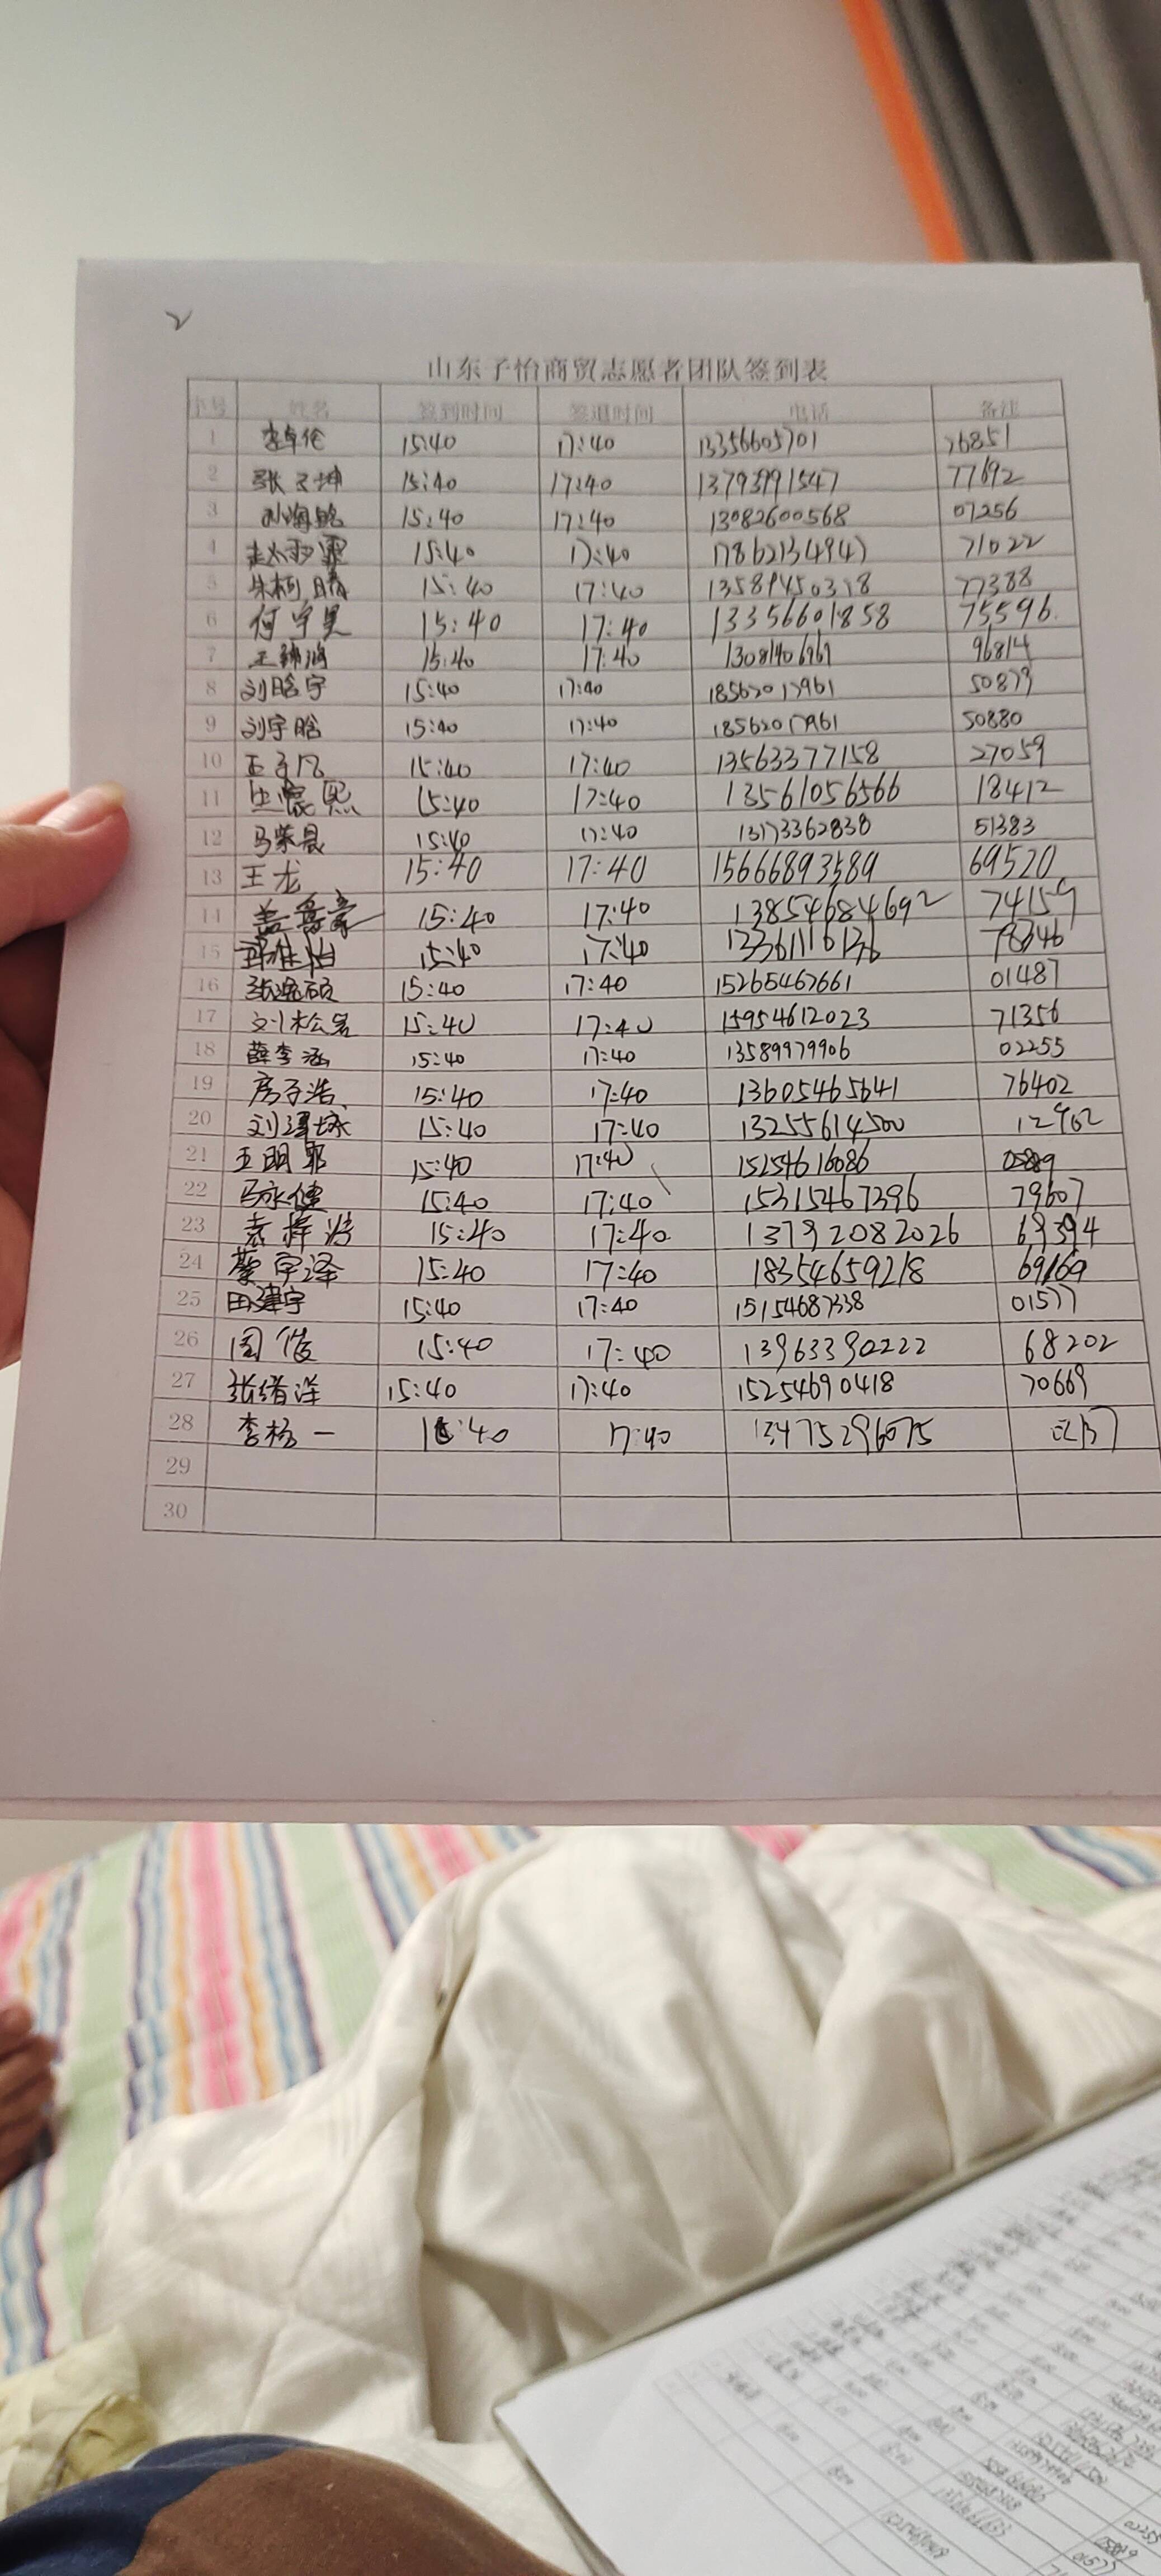 2
山东子怡商贸志愿者团队签到表
序号 姓名 签到时间 签退时间 电话 备注
1 李卓伦 15:40 17:40 13356605701 76851
2 张文坤 15:40 17:40 13793991547 77692
3 刘海铭 15:40 17:40 13082600568 07256
4 赵雨霏 15:40 17:40 17862134947 71022
5 朱柯晴 15:40 17:40 13589450318 77388
6 何宇昊 15:40 17:40 13356601858 75596
7 15:40 17:40 13081406969 96814
8 刘晗宇 15:40 17:40 18562017961 50879
9 刘宇晗 15:40 17:40 18562017961 50880
10 王子凡 15:40 17:40 13563377158 27059
11 15:40 17:40 13561056566 18412
12 马荣晨 15:40 17:40 13173362838 51383
13 王龙 15:40 17:40 15666893589 69520
14 盖鲁豪 15:40 17:40 13854684692 74159
15 15:40 17:40 13361116136 78346
16 张逸硕 15:40 17:40 15265467661 01487
17 刘松岩 15:40 17:40 15954612023 71356
18 薛李涵 15:40 17:40 13589979906 02255
19 房子浩 15:40 17:40 13605465641 76402
20 15:40 17:40 13255614500 12962
21 15:40 17:40 15254616086
22 马永健 15:40 17:40 15315467396 79607
23 袁梓涵 15:40 17:40 13792082026 69394
24 綦宇泽 15:40 17:40 18354659218 69169
25 田建宇 15:40 17:40 15154687338 01577
26 周俊 15:40 17:40 13963390222 68202
27 张绪泽 15:40 17:40 15254690418 70669
28 李杨一 15:40 17:40 13475296075
29
30